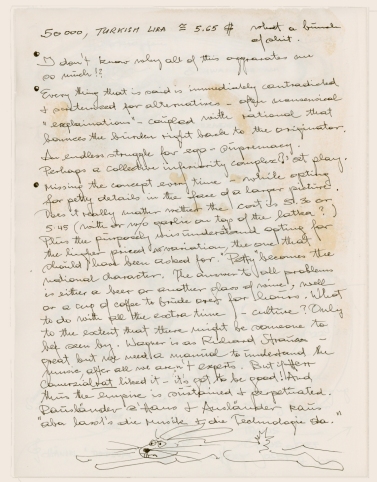 50000, TURKISH LIRA ≅ 5.65 $ what a bunch
of shit.
I don't know why all of this aggravates me
so much!?
Everything that is said is immediately contradicted
& for alternatives – often nonsensical
"explainations" – coupled with rational that
bounces the burden right back to the originator.
An endless struggle for ego-supremacy.
Perhaps a collective inferiority complex? at play.
Missing the concept every time – while opting
for petty details in the face of a larger picture.
Does it really matter wether the cost is 51.30 or
5.45 (with or w/o garlic on top of the latke?)
Plus the purposely misunderstand opting for
the higher priced variation, the one that
should have been asked for. "Petty" becomes the
national character. The answer to all problems
is either a beer or another glass of wine, well –
or a cup of coffee to over for hours. What
to do with all the extra time – culture? Only
to the extent that there might be someone to
be seen by. Wagner is as Richard Strauss –
great but we need a manual to understand the
, after all we aren't experts. But
liked it – it's got to be good! And
thus the is sustained & perpetuated.
raus & Ausländer raus
"aber lasst's die Musik & die Technologie da."